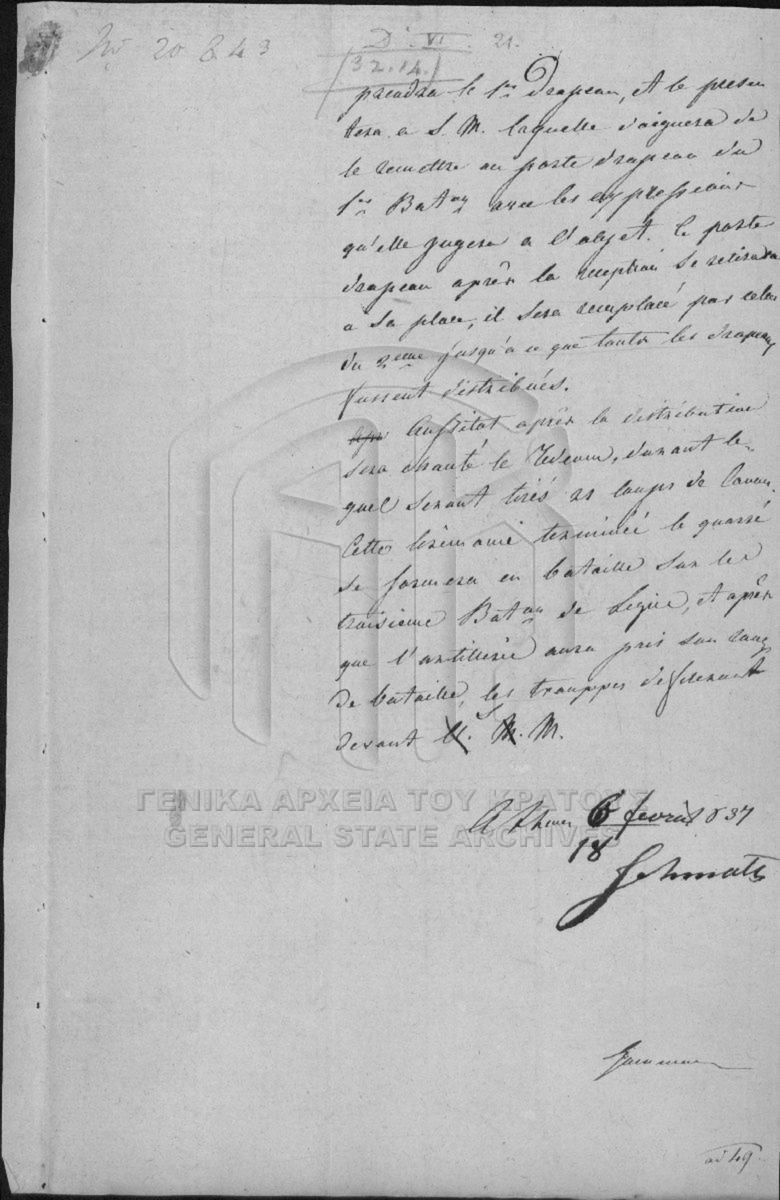 No 20643
D. VI. 21.
(32.14.)
prendra le 1er Drapeau, et le presen
tera a S. M. laquelle daignera de
le remettre au porte drapeau du
1er Baton avec les expressions
qu'elle jugera a l'objet. Le porte
drapeau après la reception se retirera
a sa place, il sera remplacé par celui
du 2eme jusqu'a ce que toutes les drapeaux
fussent distribués.
Aussitot après la distribution
sera chanté le Tedeum, durant le-
quel seront tirés 21 coups de Canon.
Cette Ceremonie terminée le quarré
se formera en bataille sur le
troisieme Baton de Ligne, et après
que l'artillerie aura pris son rang
de bataille, les trouppes defileront
devant S. M.
Athenes 6 fevrier 837
18
Schmaltz
ad 49
ΓΕΝΙΚΑ ΑΡΧΕΙΑ ΤΟΥ ΚΡΑΤΟΥΣ
GENERAL STATE ARCHIVES